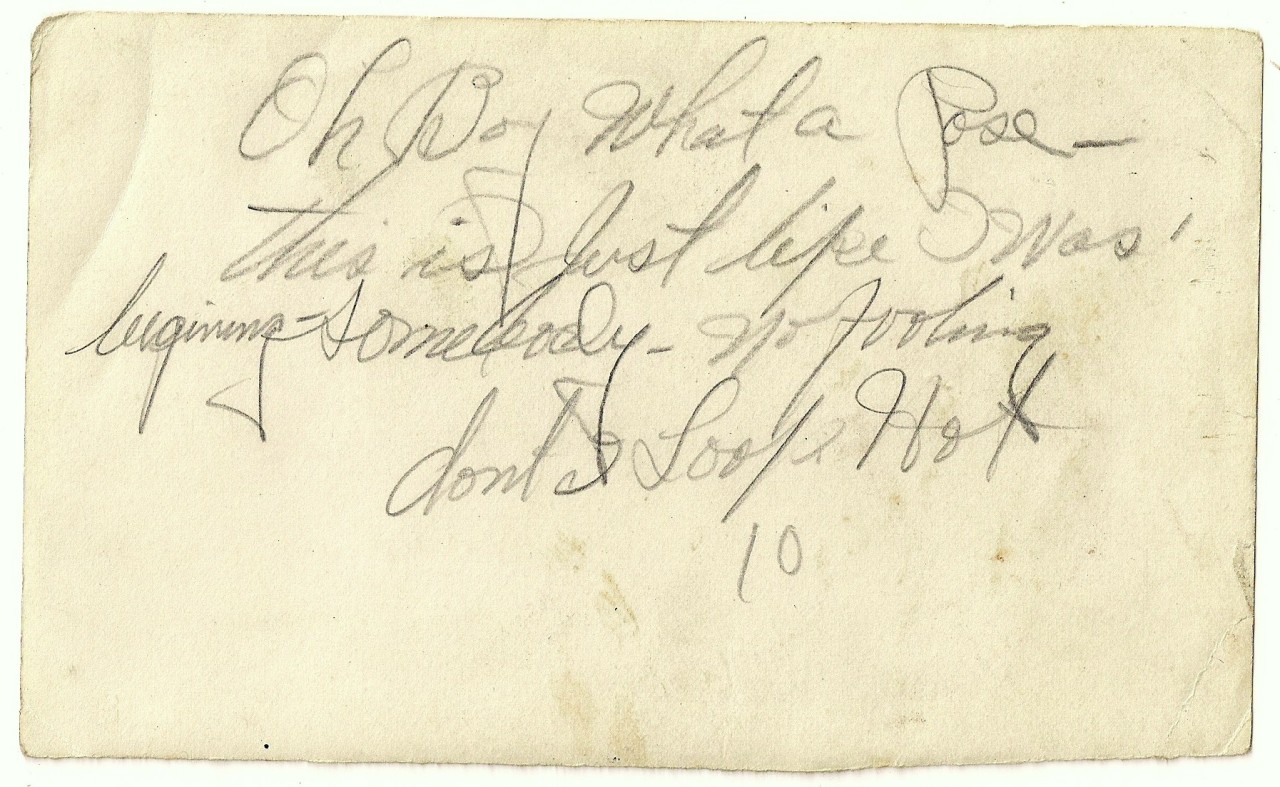 Oh Boy What a Pose —
this is Just like I Was'
begining - Somebody - No fooling
dont I Look Hot
10